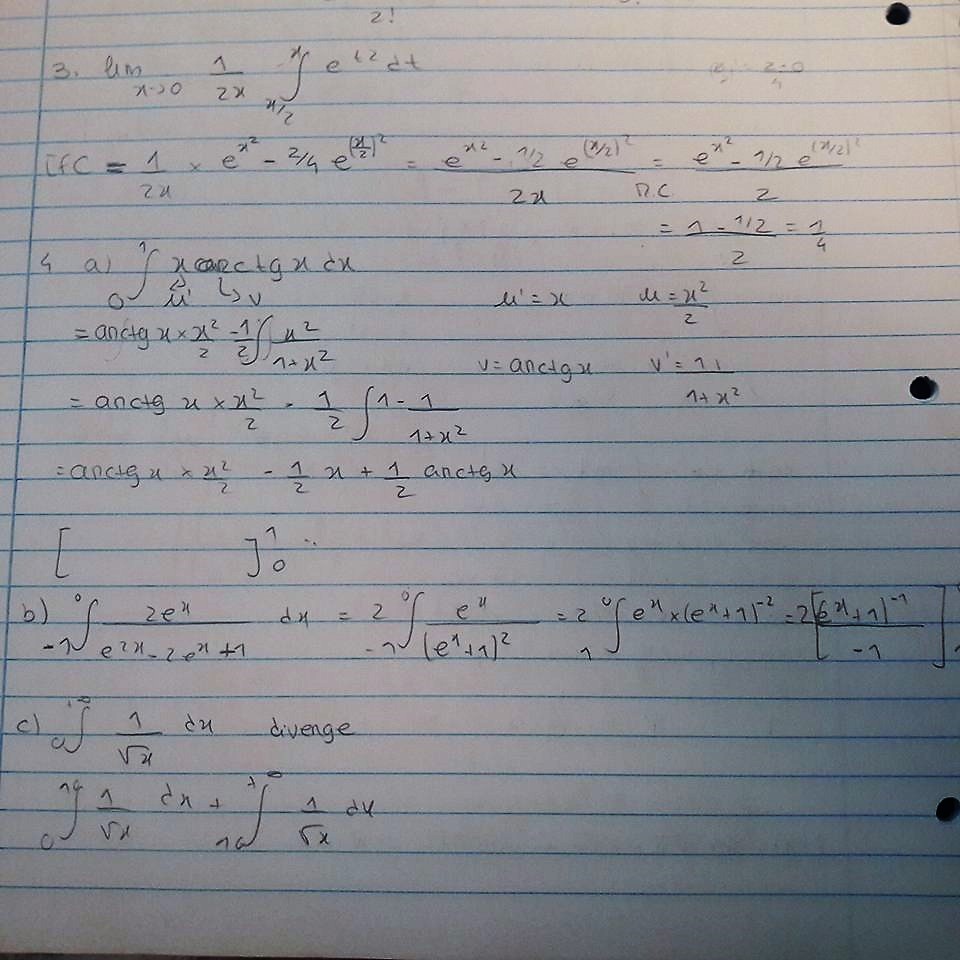 2!
3. lim x→0 1/2x ∫ x/2 x e^t2 dt
TfC = 1/2x × e^x² - 2/4 e^(x/2)² = (e^x² - 1/2 e^(x/2)²)/2x = R.C (e^x² - 1/2 e^(x/2)²)/2
= (1 - 1/2)/2 = 1/4
4 a) ∫ 0 1 x arctg x dx
μ' v μ' = x μ = x²/2
= arctg x × x²/2 - 1/2 ∫ x²/(1+x²) v = arctg x v' = 1/(1+x²)
= arctg x × x²/2 - 1/2 ∫ 1 - 1/(1+x²)
= arctg x × x²/2 - 1/2 x + 1/2 arctg x
[ ] 1 0 ..
b) ∫ -1 0 2e^x/(e^2x - 2e^x + 1) dx = 2 ∫ -1 0 e^x/(e^x+1)² = 2 ∫ 1 0 e^x × (e^x+1)^-2 = 2[(e^x+1)^-1/-1]
c) ∫ 0 +∞ 1/√x dx diverge
∫ 0 10 1/√x dx + ∫ 10 +∞ 1/√x dx